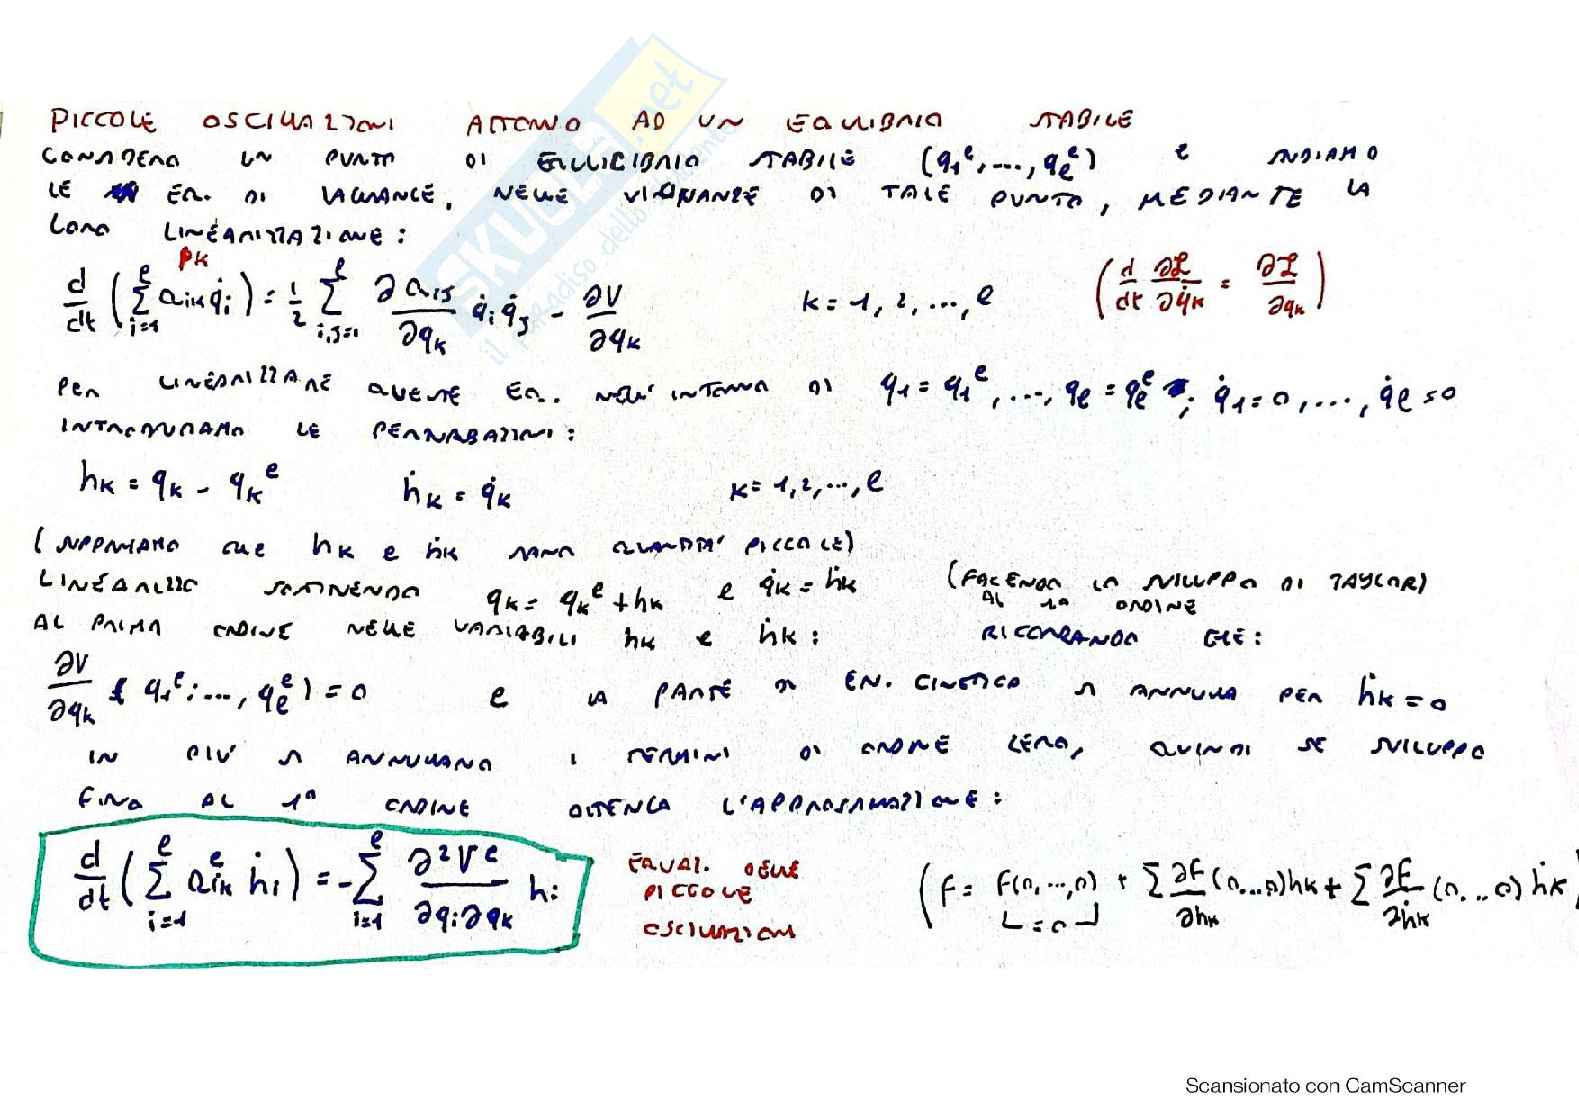 PICCOLE OSCILLAZIONI ATTORNO AD UN EQUILIBRIO STABILE
CONSIDERO UN PUNTO DI EQUILIBRIO STABILE (q₁ᵉ, ..., qₗᵉ) E STUDIAMO
LE EQ. DI LAGRANGE, NELLE VICINANZE DI TALE PUNTO, MEDIANTE LA
LORO LINEARIZZAZIONE:
pₖ
d/dt (∑_{i=1}^{l} a_{ik} q̇ᵢ) = 1/2 ∑_{i,j=1}^{l} ∂a_{ij}/∂qₖ q̇ᵢ q̇ⱼ - ∂V/∂qₖ   k = 1, 2, ..., l   (d/dt ∂ℒ/∂q̇ₖ = ∂ℒ/∂qₖ)
PER LINEARIZZARE QUESTE EQ. NELL'INTORNO DI q₁ = q₁ᵉ, ..., qₗ = qₗᵉ; q̇₁ = 0, ..., q̇ₗ = 0
INTRODURIAMO LE PERTURBAZIONI:
hₖ = qₖ - qₖᵉ   ḣₖ = q̇ₖ   k = 1, 2, ..., l
(SUPPONIAMO CHE hₖ E ḣₖ SIANO QUANTITA' PICCOLE)
LINEARIZZO SOSTITUENDO qₖ = qₖᵉ + hₖ E q̇ₖ = ḣₖ (FACENDO LO SVILUPPO DI TAYLOR)
AL 1° ORDINE
AL PRIMO ORDINE NELLE VARIABILI hₖ E ḣₖ: RICORDANDO CHE:
∂V/∂qₖ (q₁ᵉ, ..., qₗᵉ) = 0 E LA PARTE DI EN. CINETICA SI ANNULLA PER ḣₖ = 0
IN PIU' SI ANNULLANO I TERMINI DI ORDINE ZERO, QUINDI SE SVILUPPO
FINO AL 1° ORDINE OTTENGO L'APPROSSIMAZIONE:
d/dt (∑_{i=1}^{l} a_{ik}ᵉ ḣᵢ) = -∑_{i=1}^{l} ∂²Vᵉ/∂qᵢ∂qₖ hᵢ
EQUAZ. DELLE
PICCOLE
OSCILLAZIONI
(F = F(0, ..., 0) + ∑ ∂F/∂hₖ (0...0) hₖ + ∑ ∂F/∂ḣₖ (0...0) ḣₖ)
= 0
SKUOLA.net
il paradiso dello studente
Scansionato con CamScanner